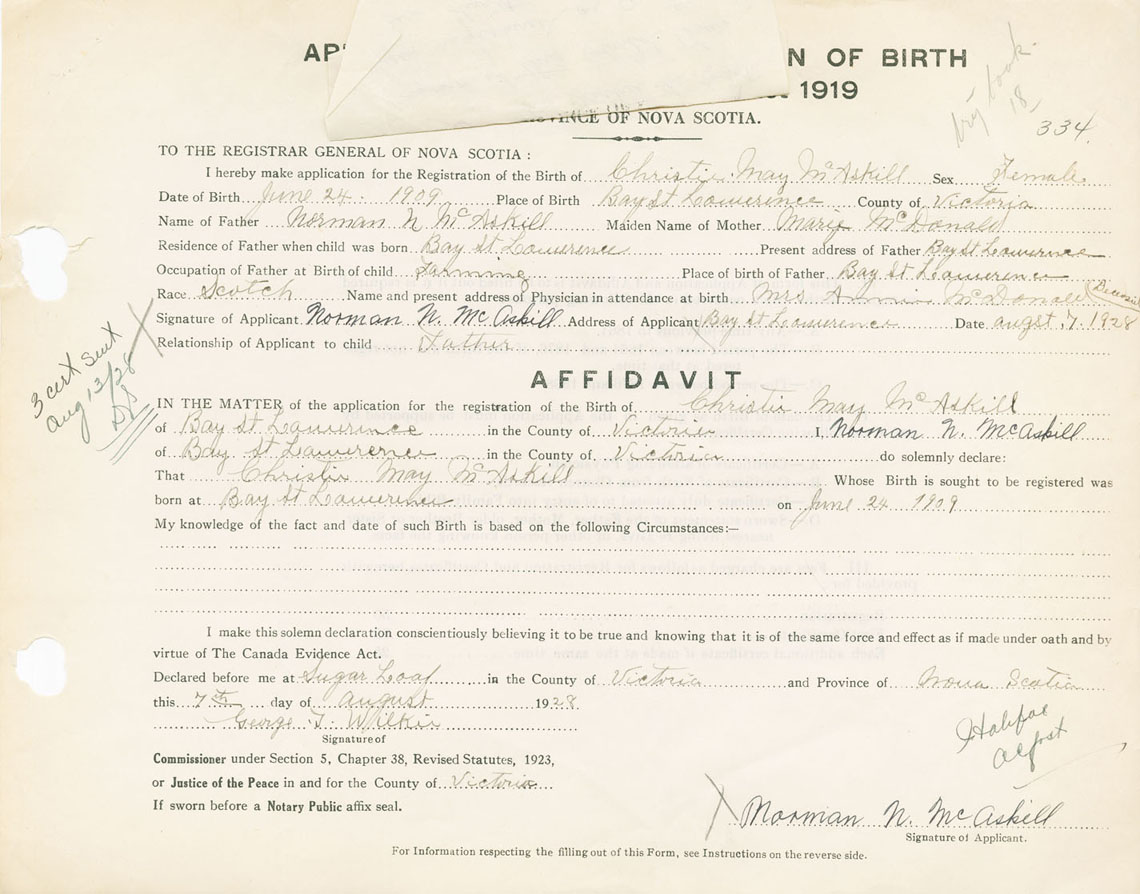 N OF BIRTH
1919
OF NOVA SCOTIA.
334.
TO THE REGISTRAR GENERAL OF NOVA SCOTIA :
I hereby make application for the Registration of the Birth of Christie May McAskill Sex Female
Date of Birth June 24. 1909 Place of Birth Bay St Lawerence County of Victoria
Name of Father Norman N McAskill Maiden Name of Mother Marie McDonald
Residence of Father when child was born Bay St Lawerence Present address of Father Bay St Lawerence
Occupation of Father at Birth of child Farming Place of birth of Father Bay St Lawerence
Race Scotch Name and present address of Physician in attendance at birth Mrs Annie McDonald
Signature of Applicant Norman N. McAskill Address of Applicant Bay St Lawerence Date augst. 7. 1928
Relationship of Applicant to child Father
3 cert sent
Aug 13/28
AFFIDAVIT
IN THE MATTER of the application for the registration of the Birth of Christie May McAskill
of Bay St Lawerence in the County of Victoria I, Norman N. McAskill
of Bay St Lawerence in the County of Victoria do solemnly declare:
That Christie May McAskill Whose Birth is sought to be registered was
born at Bay St Lawerence on June 24 1909
My knowledge of the fact and date of such Birth is based on the following Circumstances:—
I make this solemn declaration conscientiously believing it to be true and knowing that it is of the same force and effect as if made under oath and by
virtue of The Canada Evidence Act.
Declared before me at Sugar Loaf in the County of Victoria and Province of Nova Scotia
this 7th day of August 1928
George J. Wilkie
Signature of
Commissioner under Section 5, Chapter 38, Revised Statutes, 1923,
or Justice of the Peace in and for the County of Victoria
If sworn before a Notary Public affix seal.
Halifac
Norman N. McAskill
Signature of Applicant.
For Information respecting the filling out of this Form, see Instructions on the reverse side.